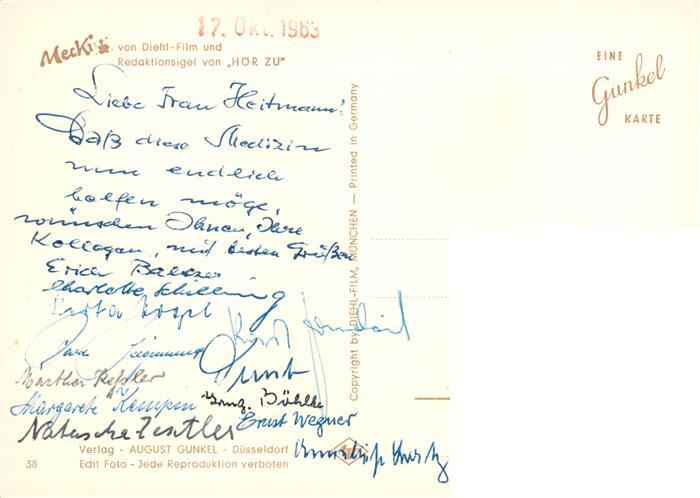 17. Okt. 1963
Mecki von Diehl-Film und
Redaktionsigel von „HÖR ZU"
EINE
Gunkel
KARTE
Liebe Frau Heitmann!
Daß diese Medizin
nun endlich
helfen möge,
wünschen Ihnen, Ihre
Kollegen, mit besten Grüßen
Erich Balzer
Charlotte Schilling
Kurt
Martha Keßler
Margarete Kempen
Böhlke
Ernst Wegner
Natascha
Kurtz
Copyright by DIEHL-FILM, MÜNCHEN — Printed in Germany
Verlag - AUGUST GUNKEL - Düsseldorf
38 Echt Foto - Jede Reproduktion verboten